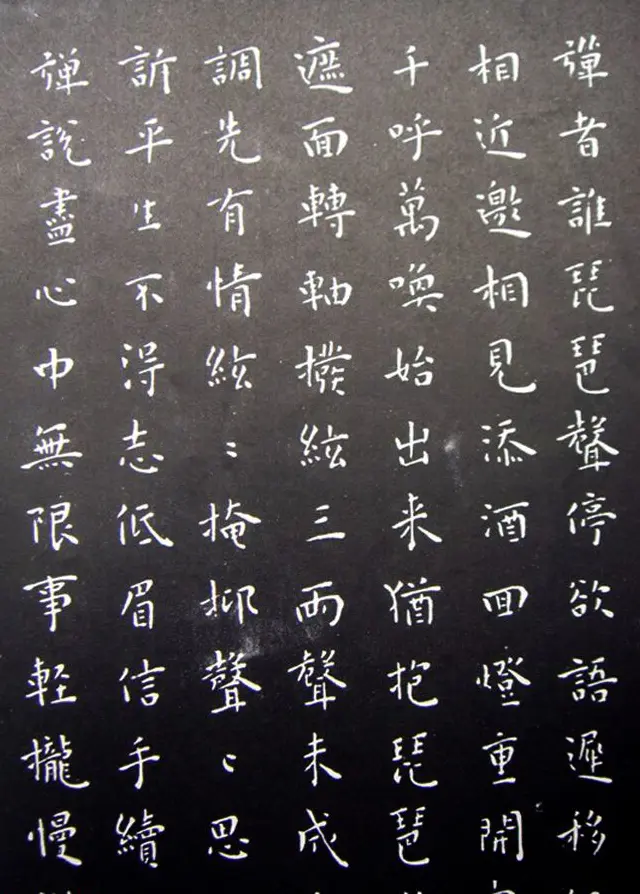 彈者誰琵琶聲停欲語遲移
相近邀相見添酒回燈重開
千呼萬喚始出来猶抱琵琶
遮面轉軸撥絃三兩聲未成
調先有情絃〻掩抑聲〻思
訴平生不得志低眉信手續
彈說盡心中無限事軽攏慢